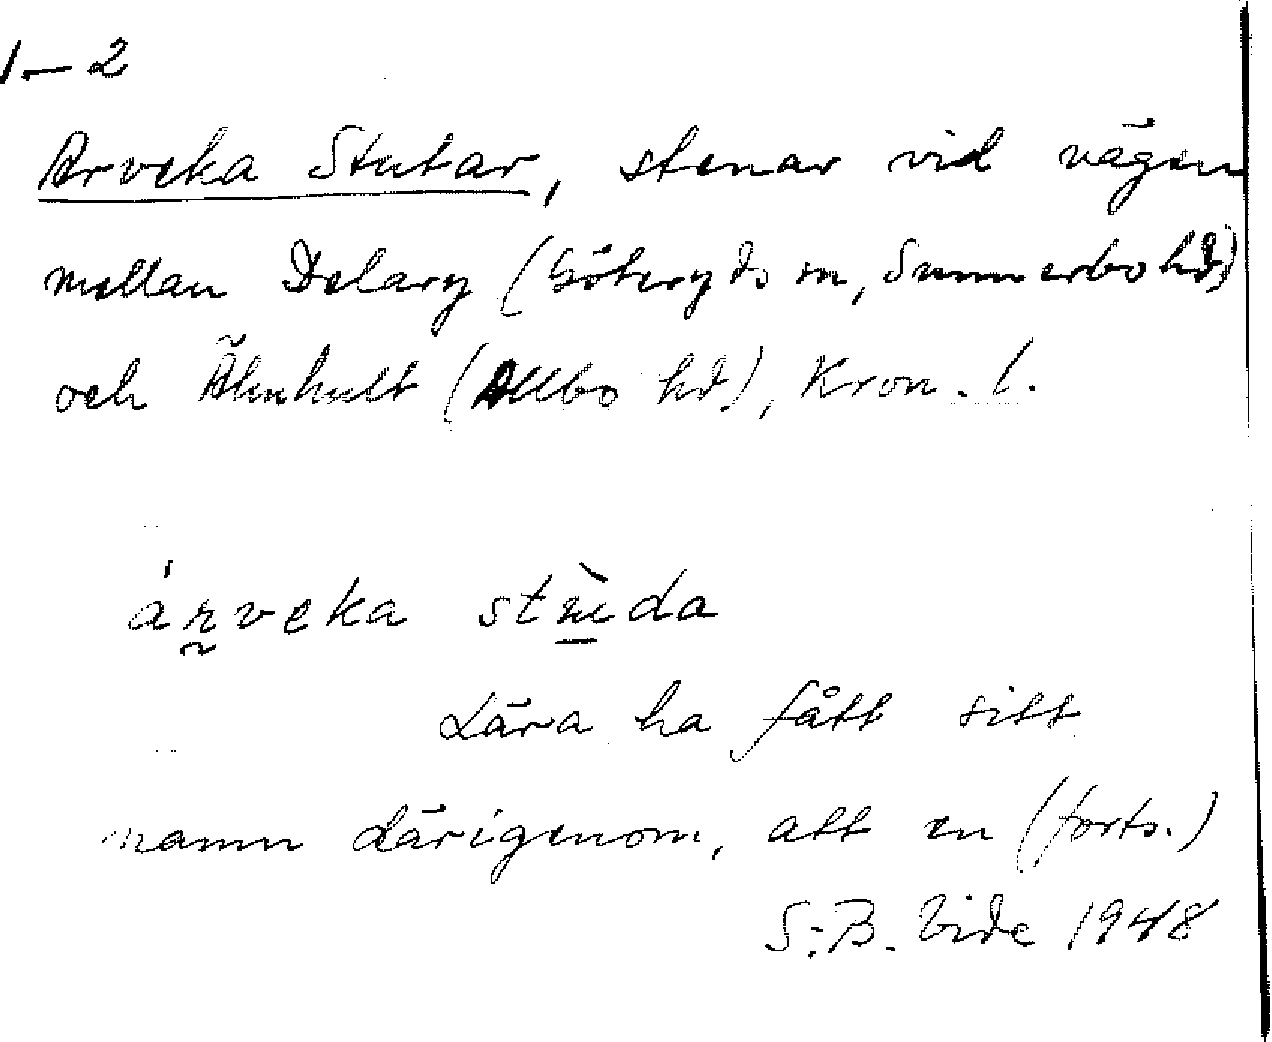 1–2
Arveka Stutar, stenar vid vägen
mellan Delary (Göteryds sn, Sunnerbo hd)
och Älmhult (Allbo hd.), Kron. l.
árveka stùda
Lära ha fått sitt
namn därigenom, att en (forts.)
S:B. Vide 1948